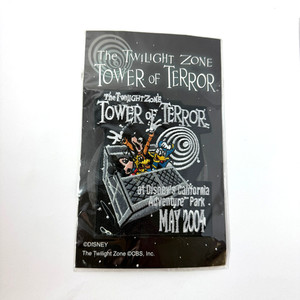 The Twilight Zone
Tower of Terror
The Twilight Zone
Tower of Terror
at Disney's California
Adventure™ Park
MAY 2004
©DISNEY
The Twilight Zone ©CBS, Inc.